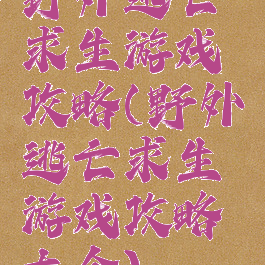 野外逃亡
求生游戏
攻略(野外
逃亡求生
游戏攻略
大全)